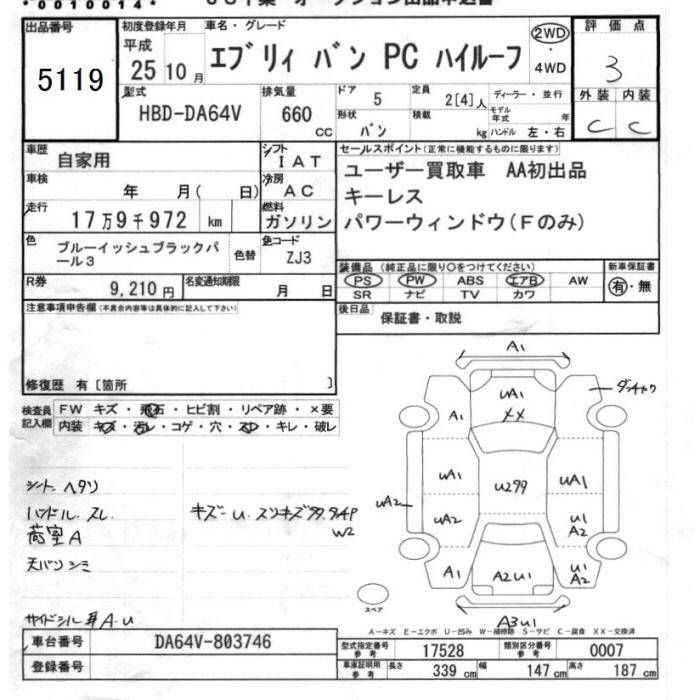 *0010014*
出品番号
5119
初度登録年月
平成
25 10 月
車名・グレード
エブリィ バン PC ハイルーフ
2WD
・
4WD
評価点
3
外装 内装
C C
型式
HBD-DA64V
排気量
660
cc
ドア
5
定員
2[4]人
ディーラー・並行
形状
バン
積載
kg
モデル
年式
年
ハンドル 左・右
車歴
自家用
シフト
IAT
車検
年 月( 日)
冷房
AC
走行
17万9千972 km
燃料
ガソリン
色
ブルーイッシュブラックパ
ール3
色替
色コード
ZJ3
R券
9,210 円
名変通知期限
月 日
セールスポイント(正常に機能するものに限ります)
ユーザー買取車 AA初出品
キーレス
パワーウィンドウ(Fのみ)
装備品(純正品に限り〇をつけてください)
新車保証書
PS PW ABS エアB AW
SR ナビ TV カワ
有・無
後日品
保証書・取説
注意事項申告欄(不具合内容等は具体的に記入して下さい)
修復歴 有〔箇所 〕
検査員
記入欄
FW キズ・飛石・ヒビ割・リペア跡・×要
内装 キズ・汚レ・コゲ・穴・スレ・キレ・破レ
シート ヘタリ
ハンドル スレ
荷室A
天バリ シミ
サイドシル A・U
A1
UA1
XX
A1
UA1
U299
UA1
UA2
UA2
U1
A2
A1
A2U1
U1
A2
A3U1
スペア
A―キズ E―エクボ U―凹み W―補修跡 S―サビ C―腐食 XX―交換済
車台番号
DA64V-803746
登録番号
型式指定番号
参考
17528
類別区分番号
参考
0007
車庫証明用
参考
長さ
339 cm
幅
147 cm
高さ
187 cm